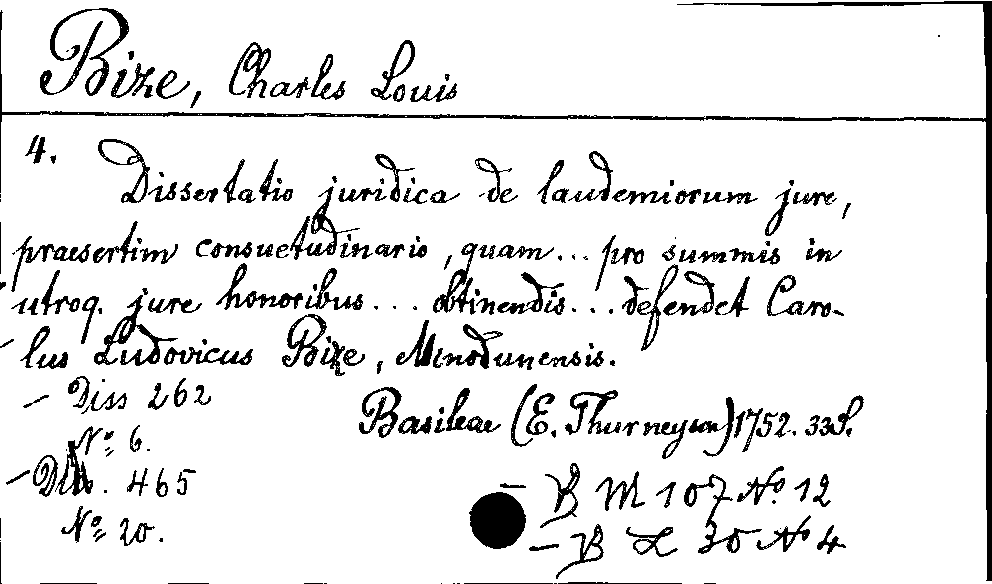 Bize, Charles Louis
4.
Dissertatio juridica de laudemiorum jure,
praesertim consuetudinario, quam... pro summis in
utroq. jure honoribus... obtinendis... defendet Caro-
lus Ludovicus Bize, Minodunensis.
- Diss 262
Nº 6.
Basileae (E. Thurneysen) 1752. 33 S.
- Diss. 465
Nº 20.
- B M 107 Nº 12
- B L 30 Nº 4